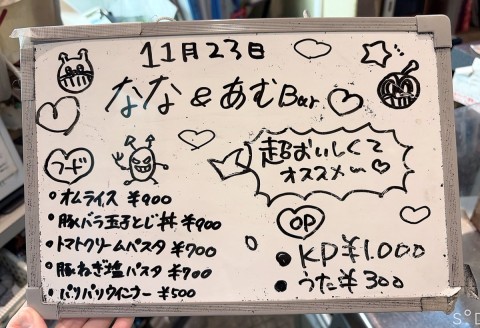 11月23日
なな & あむBar
フード
• オムライス ¥900
• 豚バラ玉子とじ丼 ¥900
• トマトクリームパスタ ¥700
• 豚ねぎ塩パスタ ¥700
• パリパリウインナー ¥500
超おいしくて
オススメ
OP
• KP ¥1.000
• うた ¥300